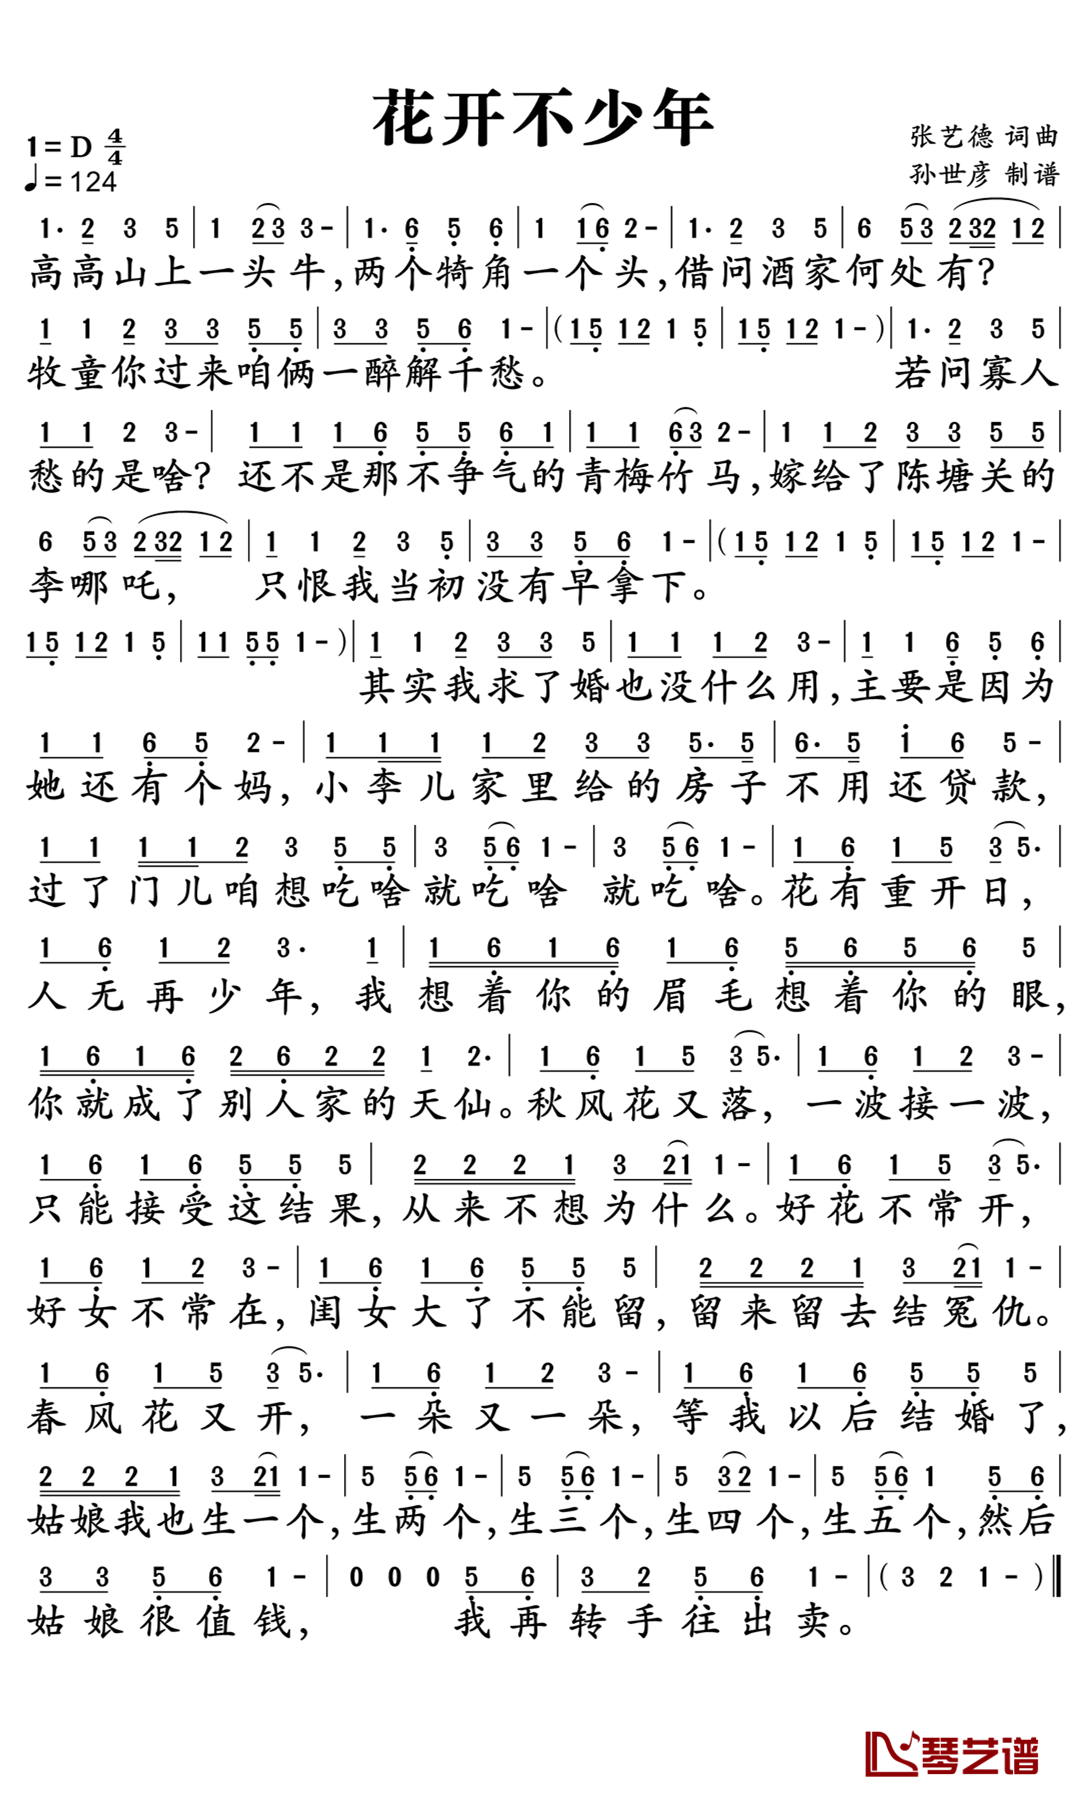 花开不少年
1=D 4/4
♩=124
张艺德 词曲
孙世彦 制谱
1· 2 3 5 | 1 23 3 - | 1· 6 5 6 | 1 16 2 - | 1· 2 3 5 | 6 53 232 12 |
高高山上一头牛,两个犄角一个头,借问酒家何处有?
1 1 2 3 3 5 5 | 3 3 5 6 1 - | (15 12 1 5 | 15 12 1 - ) | 1· 2 3 5 |
牧童你过来咱俩一醉解千愁。 若问寡人
1 1 2 3 - | 1 1 1 6 5 5 6 1 | 1 1 63 2 - | 1 1 2 3 3 5 5 |
愁的是啥? 还不是那不争气的青梅竹马,嫁给了陈塘关的
6 53 232 12 | 1 1 2 3 5 | 3 3 5 6 1 - | (15 12 1 5 | 15 12 1 - |
李哪吒, 只恨我当初没有早拿下。
15 12 1 5 | 11 55 1 - ) | 1 1 2 3 3 5 | 1 1 1 2 3 - | 1 1 6 5 6 |
其实我求了婚也没什么用,主要是因为
1 1 6 5 2 - | 1 1 1 1 2 3 3 5· 5 | 6· 5 1 6 5 - |
她还有个妈,小李儿家里给的房子不用还贷款,
1 1 1 1 2 3 5 5 | 3 56 1 - | 3 56 1 - | 1 6 1 5 3 5· |
过了门儿咱想吃啥就吃啥 就吃啥。花有重开日,
1 6 1 2 3· 1 | 1 6 1 6 1 6 5 6 5 6 5 |
人无再少年,我想着你的眉毛想着你的眼,
1 6 1 6 2 6 2 2 1 2· | 1 6 1 5 3 5· | 1 6 1 2 3 - |
你就成了别人家的天仙。秋风花又落,一波接一波,
1 6 1 6 5 5 5 | 2 2 2 1 3 21 1 - | 1 6 1 5 3 5· |
只能接受这结果,从来不想为什么。好花不常开,
1 6 1 2 3 - | 1 6 1 6 5 5 5 | 2 2 2 1 3 21 1 - |
好女不常在,闺女大了不能留,留来留去结冤仇。
1 6 1 5 3 5· | 1 6 1 2 3 - | 1 6 1 6 5 5 5 |
春风花又开,一朵又一朵,等我以后结婚了,
2 2 2 1 3 21 1 - | 5 56 1 - | 5 56 1 - | 5 32 1 - | 5 56 1 5 6 |
姑娘我也生一个,生两个,生三个,生四个,生五个,然后
3 3 5 6 1 - | 0 0 0 5 6 | 3 2 5 6 1 - | ( 3 2 1 - ) ‖
姑娘很值钱, 我再转手往出卖。
琴艺谱